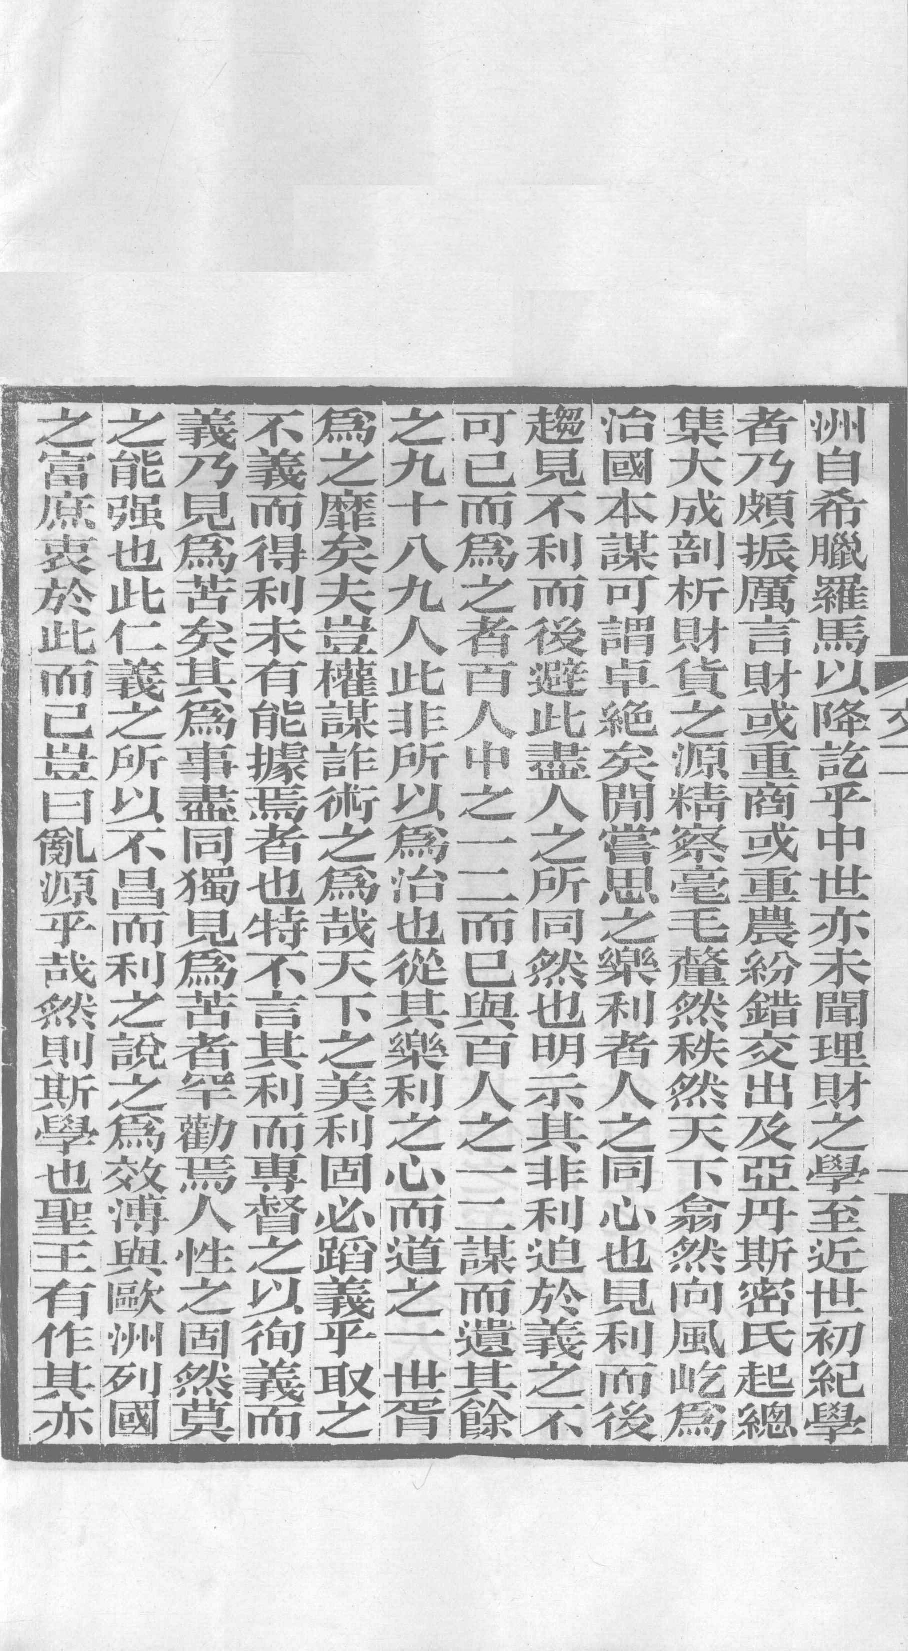 洲自希臘羅馬以降訖乎中世亦未聞理財之學至近世初紀學
者乃頗振厲言財或重商或重農紛錯交出及亞丹斯密氏起總
集大成剖析財貨之源精察毫毛釐然秩然天下翕然向風屹爲
治國本謀可謂卓絶矣閒嘗思之樂利者人之同心也見利而後
趨見不利而後避此盡人之所同然也明示其非利迫於義之不
可已而爲之者百人中之一二而已與百人之一二謀而遺其餘
之九十八九人此非所以爲治也從其樂利之心而道之一世胥
爲之靡矣夫豈權謀詐術之爲哉天下之美利固必蹈義乎取之
不義而得利未有能據焉者也特不言其利而專督之以徇義而
義乃見爲苦矣其爲事盡同獨見爲苦者罕勸焉人性之固然莫
之能强也此仁義之所以不昌而利之說之爲效溥與歐洲列國
之富庶衷於此而已豈曰亂源乎哉然則斯學也聖王有作其亦
文一
一